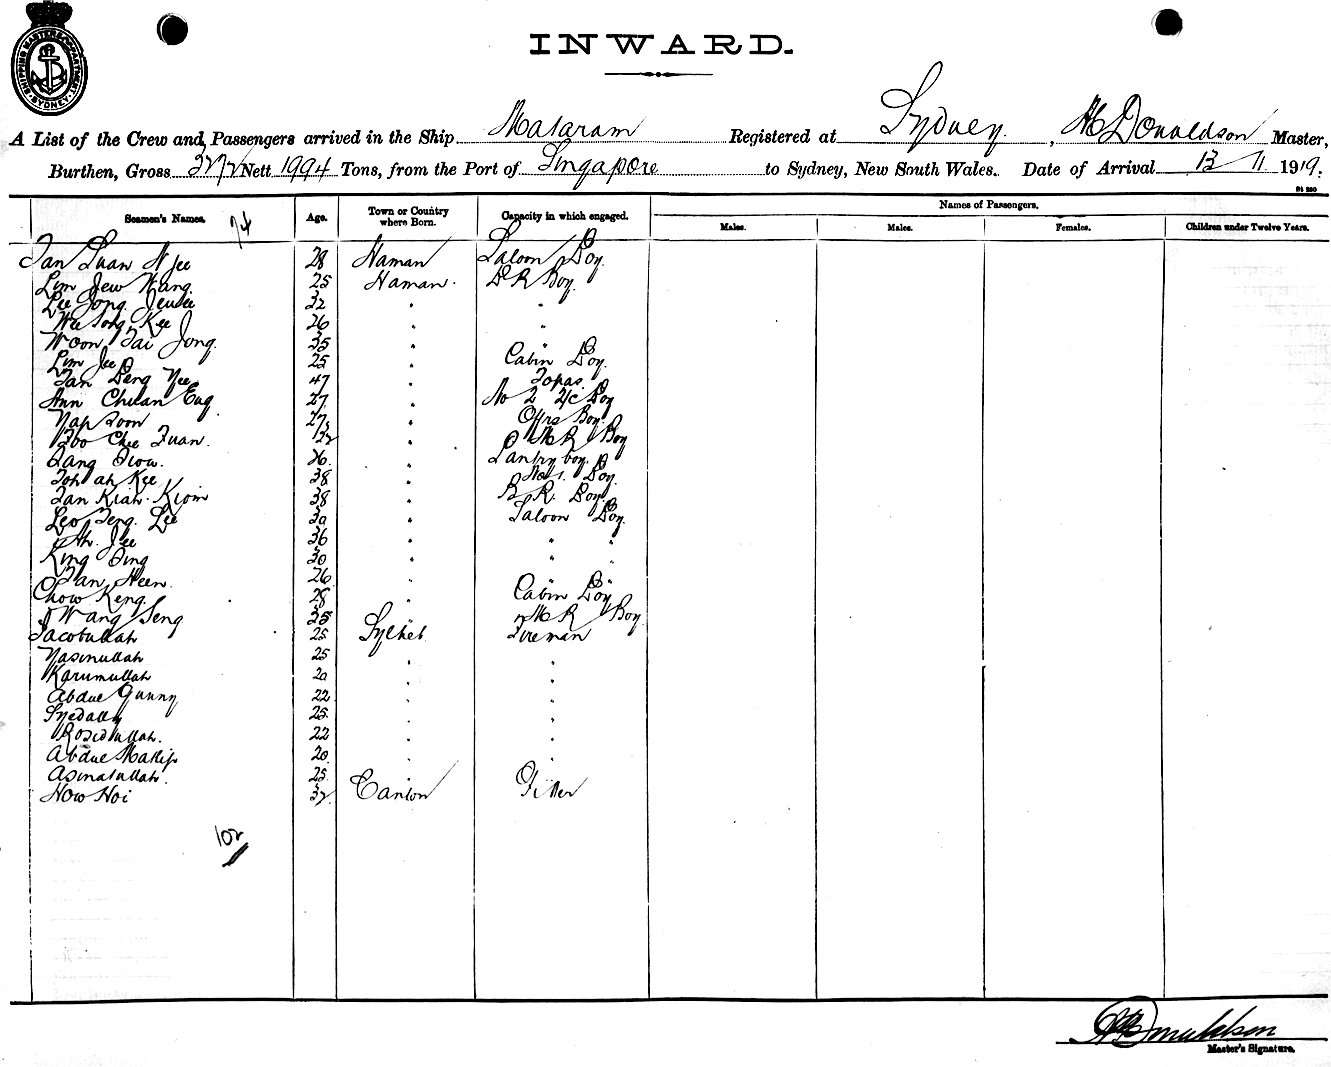 SHIPPING MASTERS DEPARTMENT SYDNEY
INWARD.
A List of the Crew and Passengers arrived in the Ship Mataram Registered at Sydney, McDonaldson Master,
Burthen, Gross Nett 1994 Tons, from the Port of Singapore to Sydney, New South Wales. Date of Arrival 13 11 1919.
Seamen's Names. 74 Age. Town or Country where Born. Capacity in which engaged. Names of Passengers.
Males. Males. Females. Children under Twelve Years.
Tan Luan 28 Haman Saloon Boy
Lim Jew 25 Haman. Boy.
Lee Jong 32 " "
Wee Song Kee 26 " "
Woon Tai Jong. 35 " "
Lim Jee 25 " Cabin Boy.
Tan Beng 47 " Topas
Ann Chuan Eng 27 " No 2 Boy
Yap Soon 27 " Offrs Boy.
Foo Chee Juan. 32 " M R Boy
26 " Pantry boy.
Toh ah Kee 38 " No 1. Boy.
Tan Kiah Kiom 38 " B.R. Boy.
Leo Teng Lee 30 " Saloon Boy.
Ah. Jee 36 " " "
King Ting 30 " " "
Tan Heen. 26 " " "
Chow Keng. 28 " Cabin Boy
Wang Seng 35 " M R Boy.
Jacobullah 25 Sylhet Fireman
Nasinullah 25 " "
Karumullah 20 " "
Abdue Gunny 22 " "
Syedally 25 " "
Rosidullah. 22 " "
Abdue Mallip 20 " "
Asinatullah. 25 " "
How Hoi 32 Canton Fitter
102
Master's Signature.